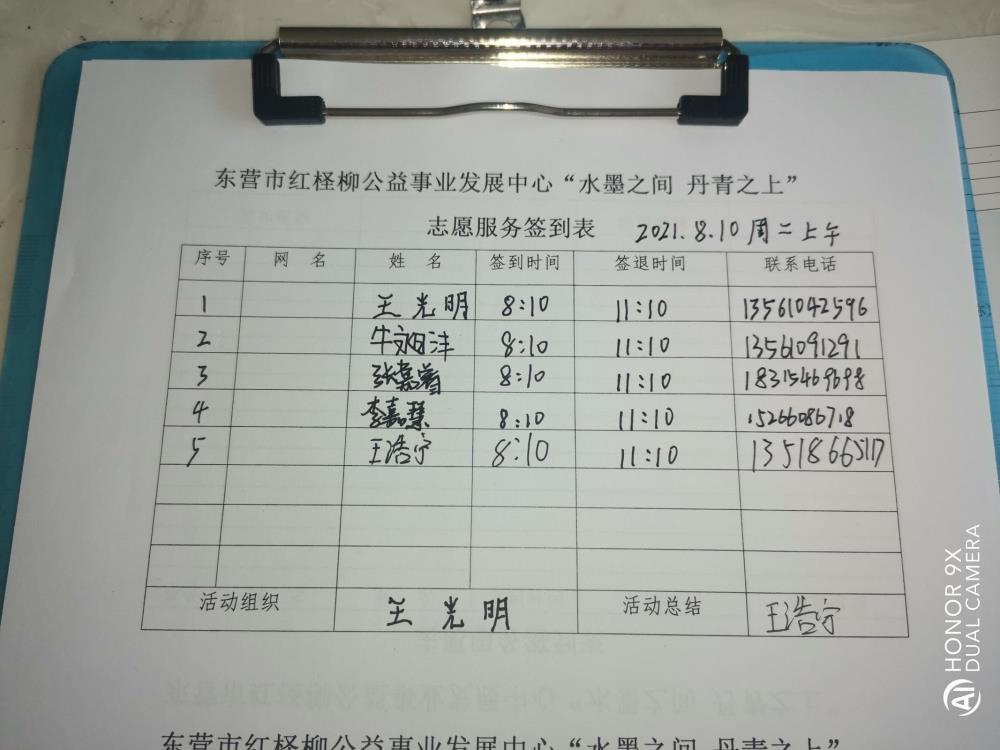 东营市红柽柳公益事业发展中心“水墨之间 丹青之上”
志愿服务签到表 2021.8.10 周二上午
序号 网 名 姓 名 签到时间 签退时间 联系电话
1 王光明 8:10 11:10 13561042596
2 8:10 11:10 13561091291
3 8:10 11:10 18315469698
4 李嘉慧 8:10 11:10
5 王浩宁 8:10 11:10 13518665117
活动组织 王光明 活动总结 王浩宁
东营市红柽柳公益事业发展中心“水墨之间 丹青之上”
HONOR 9X
DUAL CAMERA
AI